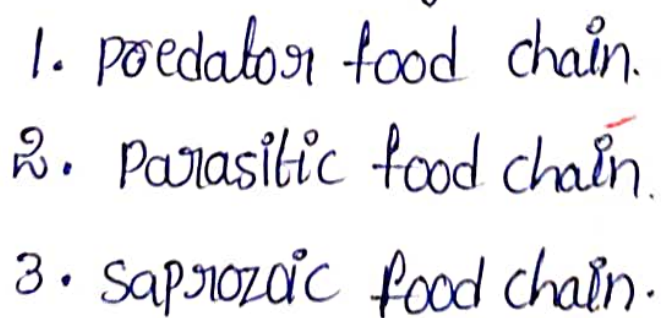 1. predator food chain.
2. Parasitic food chain.
3. Saprozoic food chain.